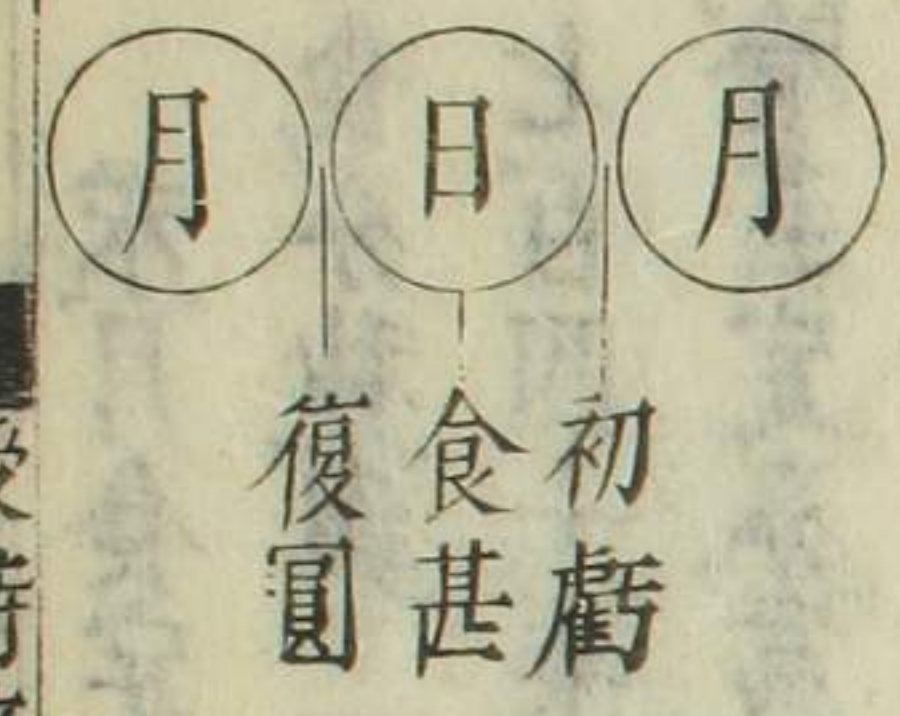 月
日
月
初虧
食甚
復圓